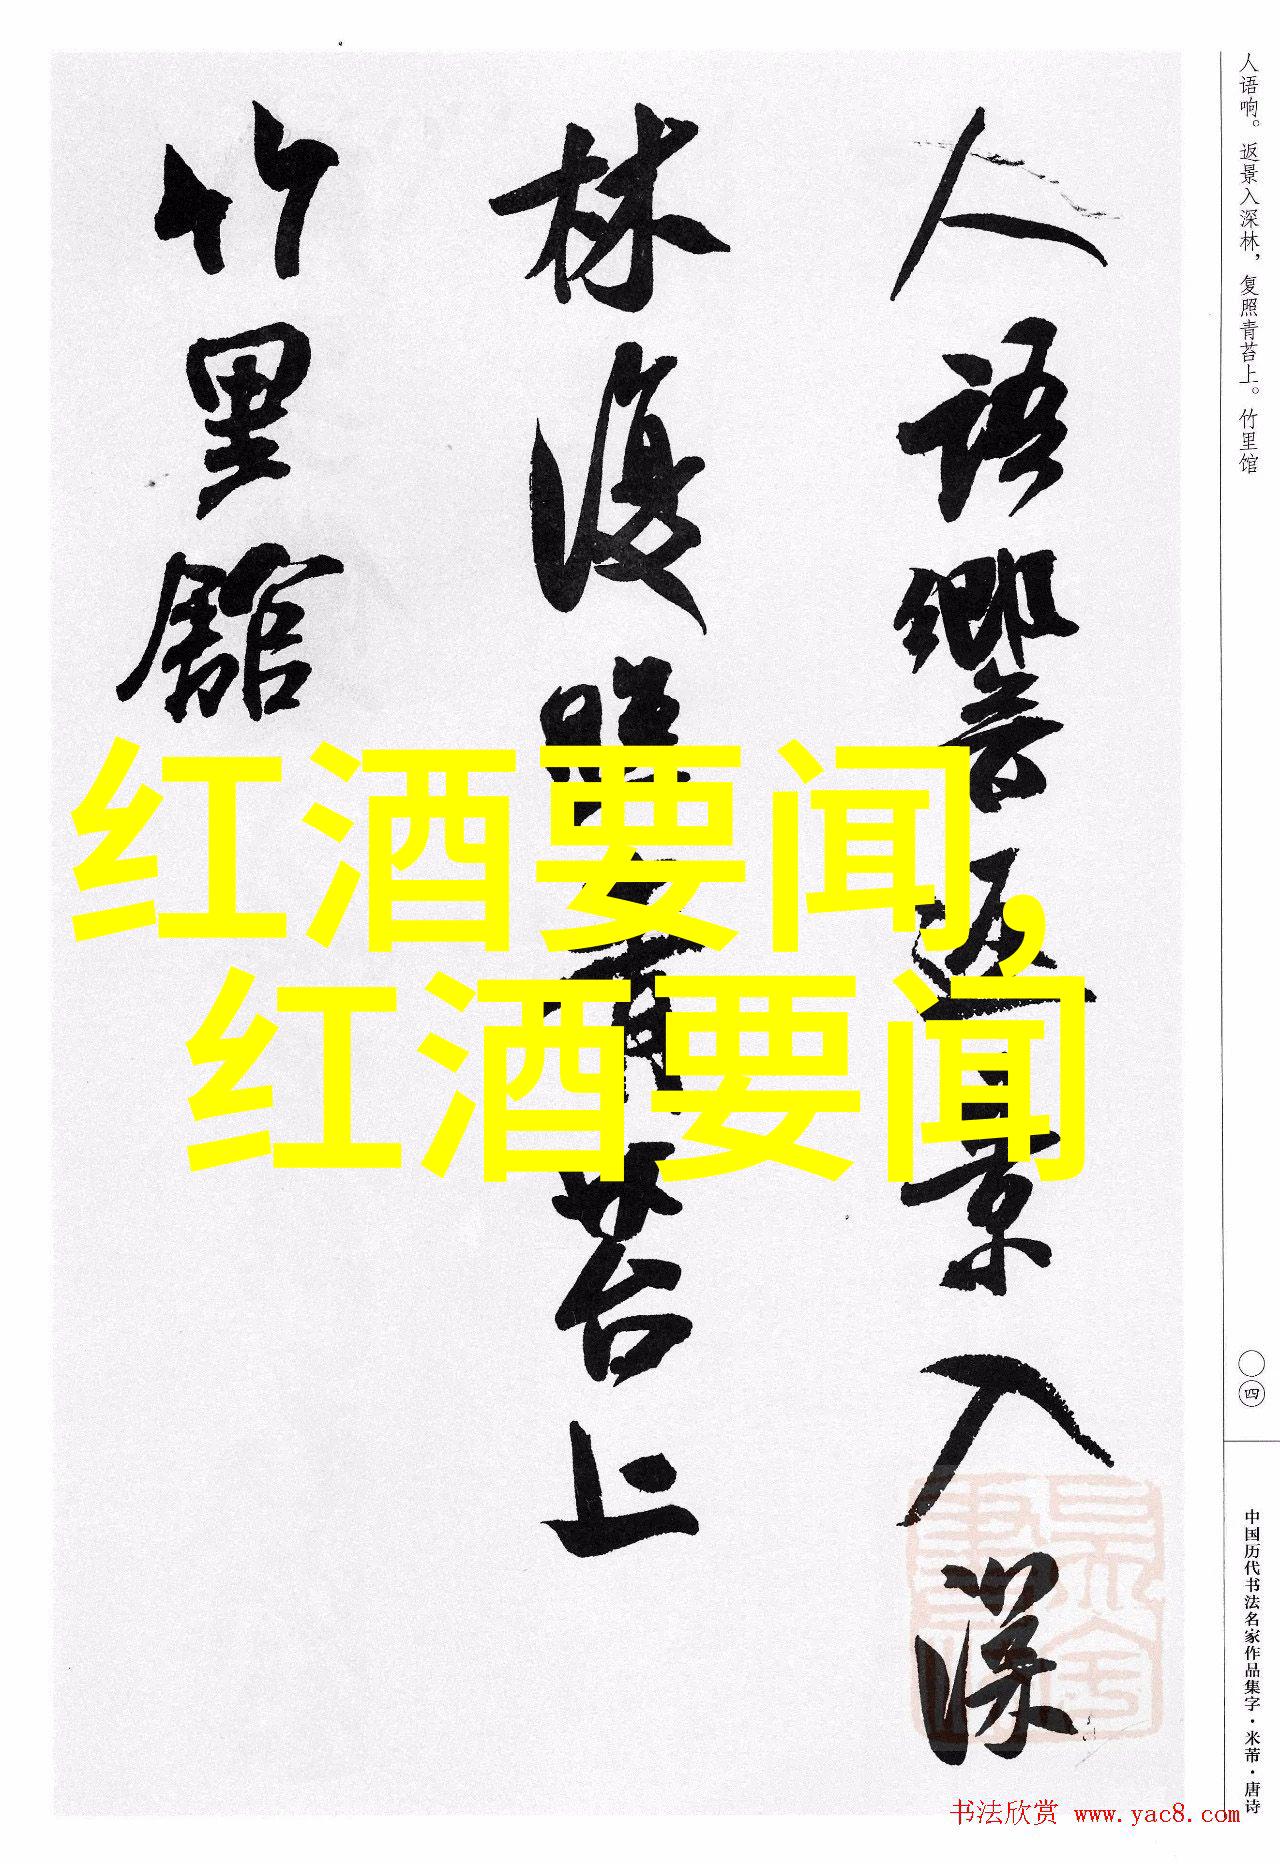 人语响。返景入深林，复照青苔上。竹里馆
人語響返景入深
林復照青苔上
竹里館
红酒要闻,
红酒要闻
〇四
中国历代书法名家作品集字·米芾·唐诗
书法欣赏 www.yac8.com